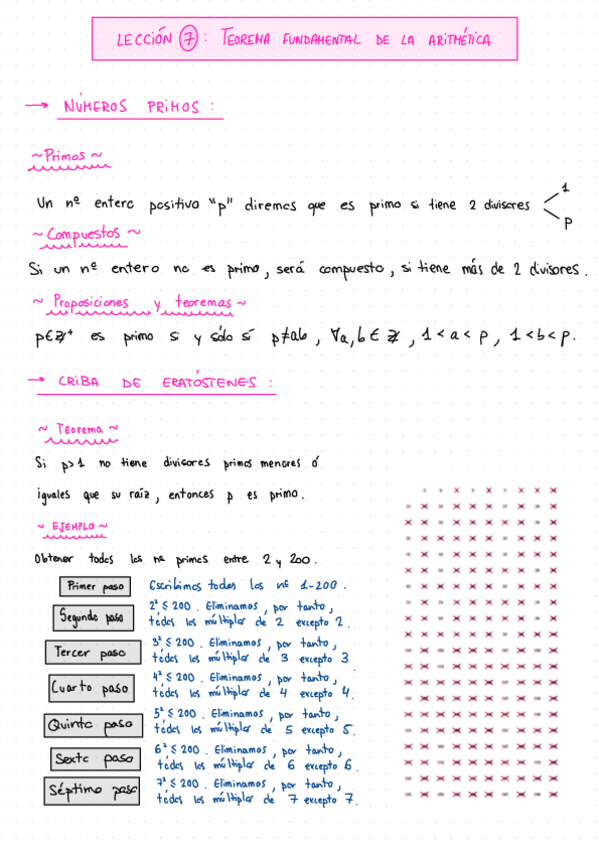 LECCIÓN 7: TEOREMA FUNDAMENTAL DE LA ARITMÉTICA
→ NÚMEROS PRIMOS:
~Primos~
Un nº entero positivo "p" diremos que es primo si tiene 2 divisores 1
p
~Compuestos~
Si un nº entero no es primo, será compuesto, si tiene más de 2 divisores.
~ Proposiciones y teoremas ~
p∈ℤ⁺ es primo si y sólo si p≠ab, ∀a,b∈ℤ, 1<a<p, 1<b<p.
→ CRIBA DE ERATÓSTENES:
~ Teorema ~
Si p>1 no tiene divisores primos menores ó
iguales que su raíz, entonces p es primo.
~ EJEMPLO ~
Obtener todos los nº primos entre 2 y 200.
Primer paso Escribimos todos los nº 1-200.
Segundo paso 2² ≤ 200. Eliminamos, por tanto,
todos los múltiplos de 2 excepto 2.
Tercer paso 3² ≤ 200. Eliminamos, por tanto,
todos los múltiplos de 3 excepto 3
Cuarto paso 4² ≤ 200. Eliminamos, por tanto,
todos los múltiplos de 4 excepto 4.
Quinto paso 5² ≤ 200. Eliminamos, por tanto,
todos los múltiplos de 5 excepto 5.
Sexto paso 6² ≤ 200. Eliminamos, por tanto,
todos los múltiplos de 6 excepto 6.
Séptimo paso 7² ≤ 200. Eliminamos, por tanto,
todos los múltiplos de 7 excepto 7.